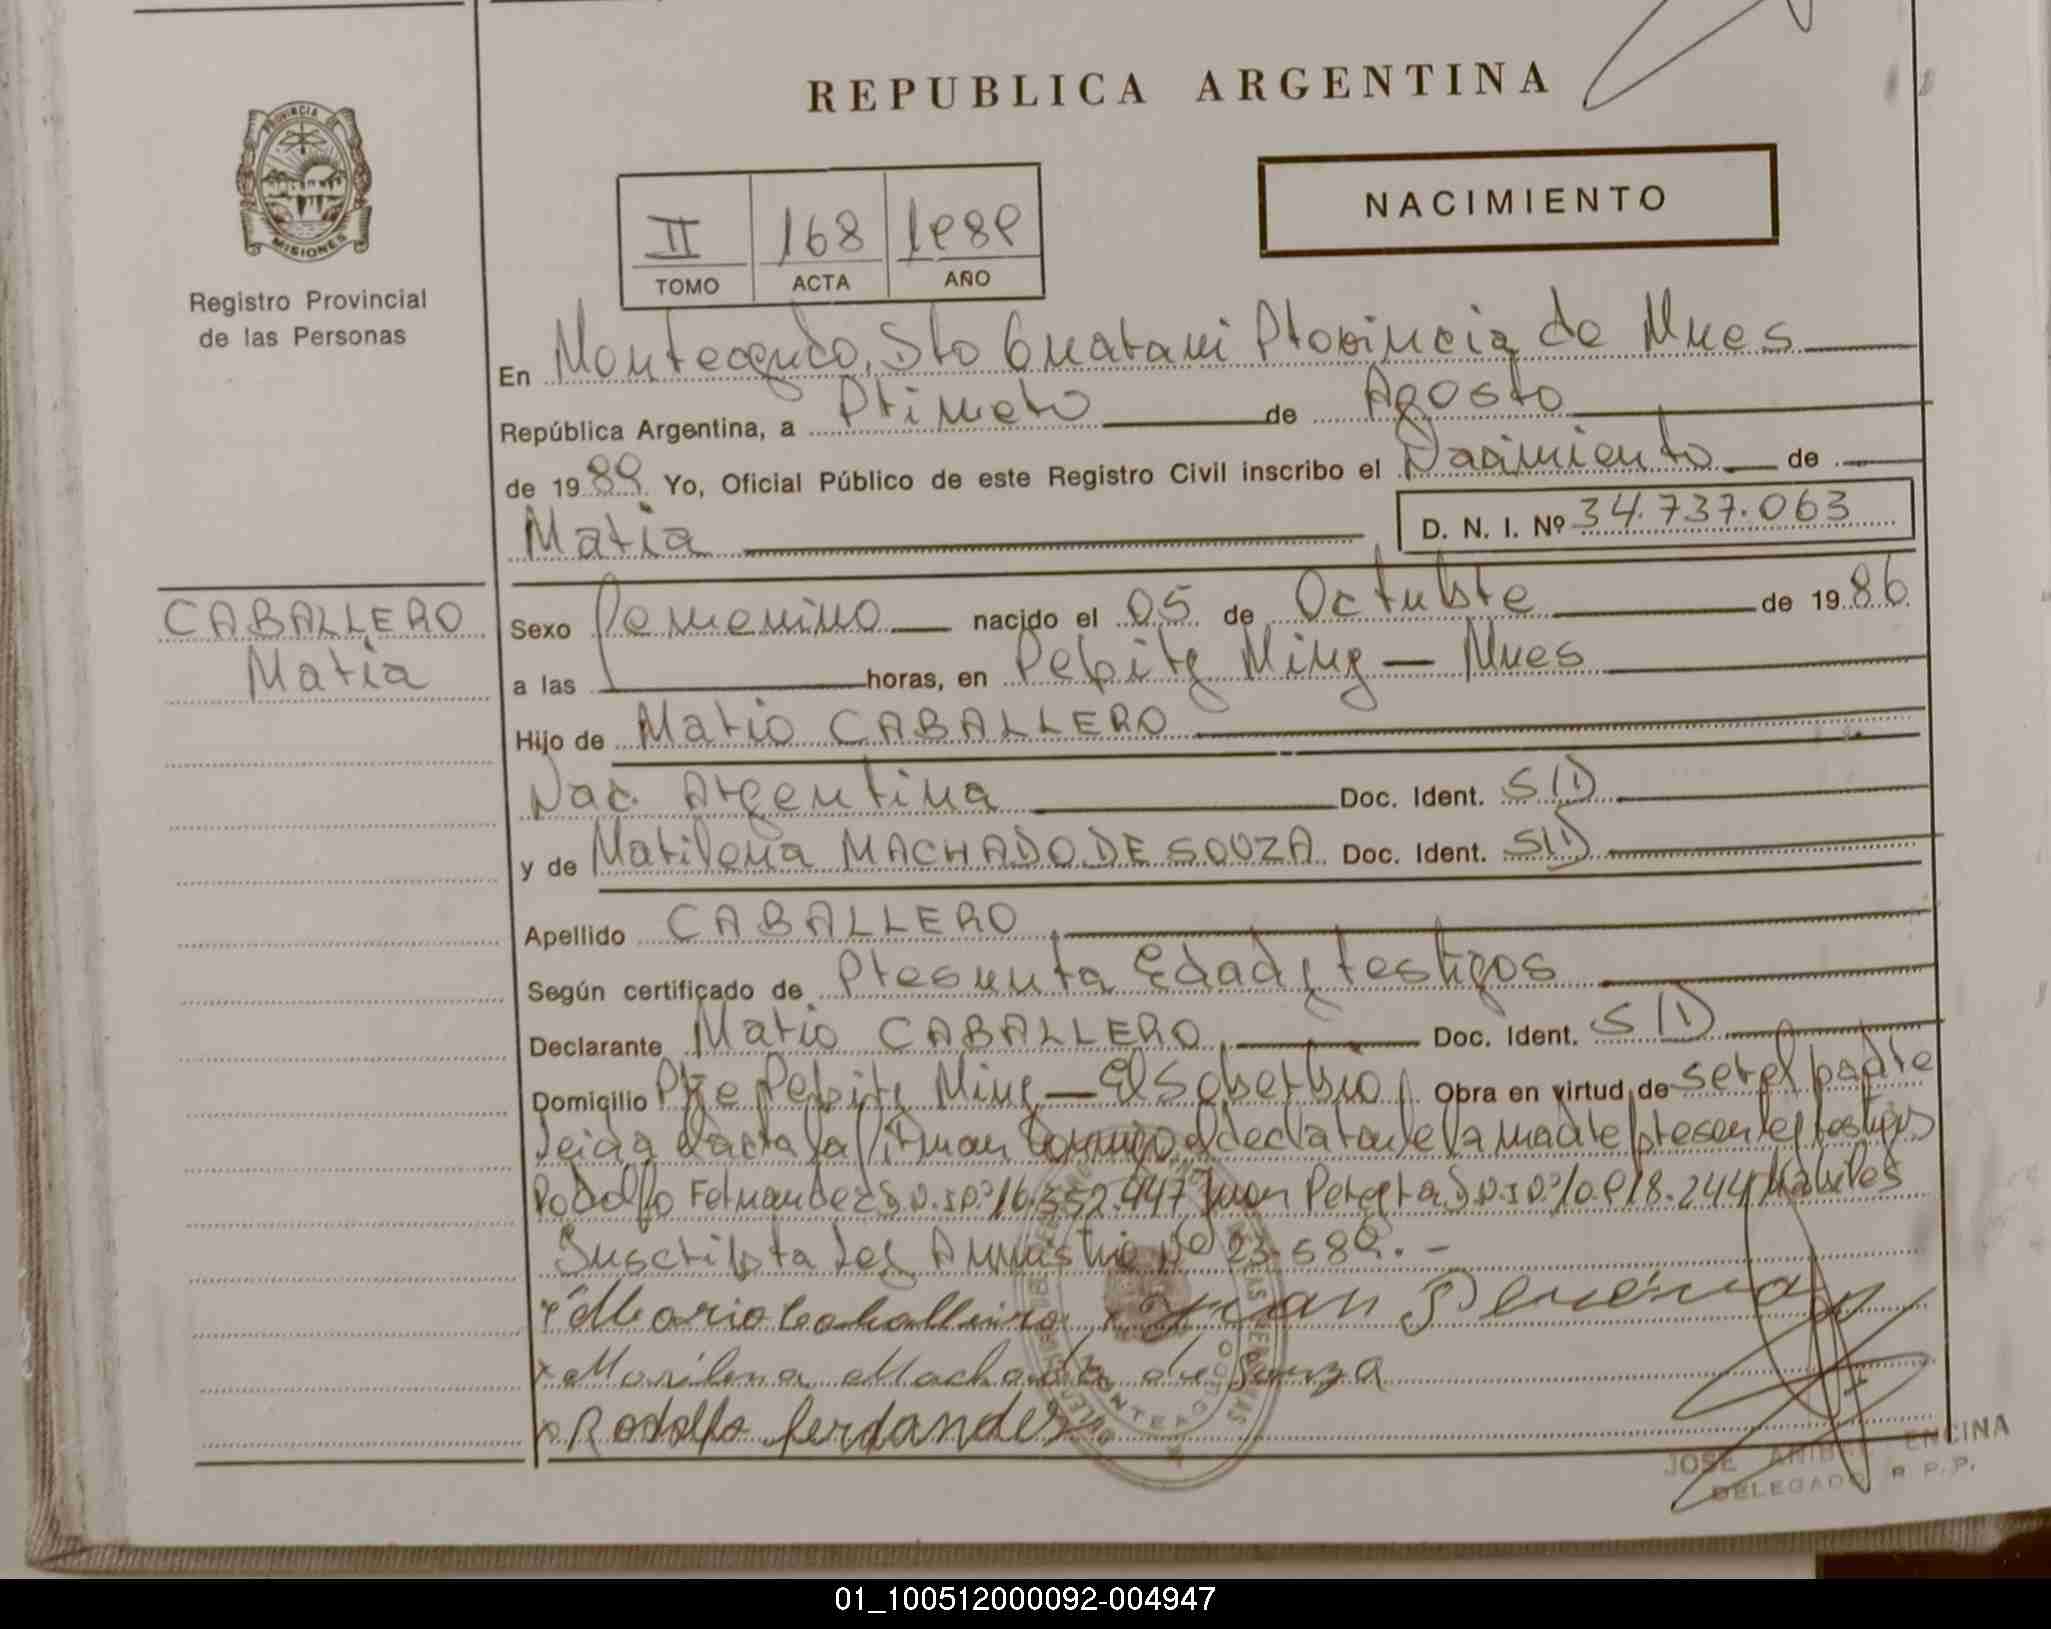 REPUBLICA ARGENTINA
NACIMIENTO
PROVINCIA DE
MISIONES
Registro Provincial
de las Personas
II 168 1989
TOMO ACTA AÑO
En Monteagudo, Dto Guarani Provincia de Mnes
República Argentina, a Primero de Agosto
de 1989 Yo, Oficial Público de este Registro Civil inscribo el Nacimiento de
Maria D. N. I. Nº 34.737.063
CABALLERO
Maria
Sexo Femenino nacido el 05 de Octubre de 1986
a las horas, en Pepiry Miny - Mnes
Hijo de Mario CABALLERO
Nac. Argentina Doc. Ident. S/D
y de Marilena MACHADO DE SOUZA Doc. Ident. S/D
Apellido CABALLERO
Según certificado de Presunta Edad y testigos
Declarante Mario CABALLERO Doc. Ident. S/D
Domicilio Pje Pepiry Miny - El Soberbio Obra en virtud de ser el padre
Leida el acta la firman conmigo el declarante la madre presente y testigos
Rodolfo Fernandez D.N.I.Nº 16.552.447 Juan Pereyra D.N.I.Nº 10.918.244 Habiles
Suscripta Ley Amnistia Nº 23.589.-
Mario Caballeiro Juan
Marilena Machado de Souza
Rodolfo ferdandes
MONTEAGUDO
JOSE ANIBAL ENCINA
DELEGADO R.P.P.
01_100512000092-004947